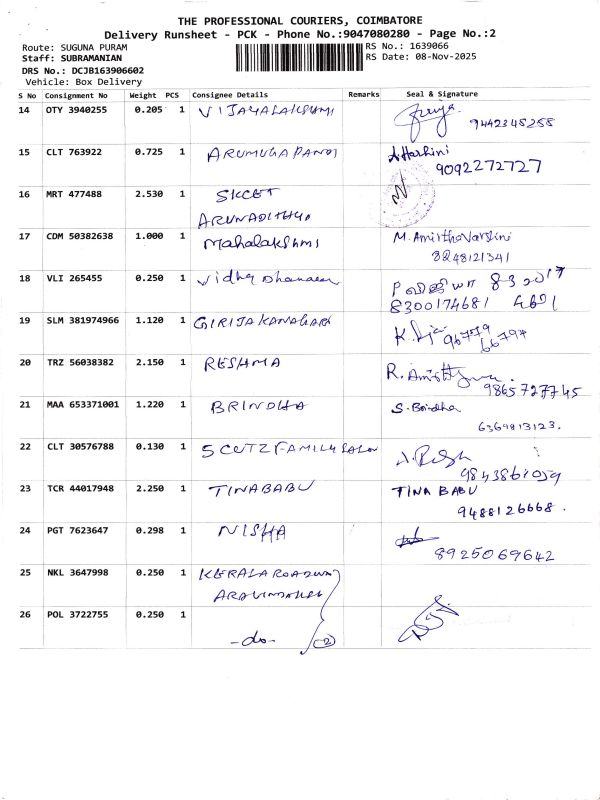 THE PROFESSIONAL COURIERS, COIMBATORE
Delivery Runsheet - PCK - Phone No.:9047080280 - Page No.:2
Route: SUGUNA PURAM RS No.: 1639066
Staff: SUBRAMANIAN RS Date: 08-Nov-2025
DRS No.: DCJB163906602
Vehicle: Box Delivery
S No Consignment No Weight PCS Consignee Details Remarks Seal & Signature
14 OTY 3940255 0.205 1 VIJAYALAKSHMI 9442348258
15 CLT 763922 0.725 1 ARUMUGAPANDI A.Harhini
9092272727
16 MRT 477488 2.530 1 SKCET
ARUNADITHYA
17 CDM 50382638 1.000 1 Mahalakshmi M. AmirthaVarshini
8248121341
18 VLI 265455 0.250 1 Vidhya
8300174681
19 SLM 381974966 1.120 1 GIRIJA 96779
66797
20 TRZ 56038382 2.150 1 RESHMA R.
9865727745
21 MAA 653371001 1.220 1 BRINDHA S. Brindha
6369813123.
22 CLT 30576788 0.130 1 5 CUTZ FAMILY SALON
9843861059
23 TCR 44017948 2.250 1 TINABABU TINA BABU
9488126668.
24 PGT 7623647 0.298 1 NISHA
8925069642
25 NKL 3647998 0.250 1 KERALA ROADWAY
26 POL 3722755 0.250 1 -do- 2